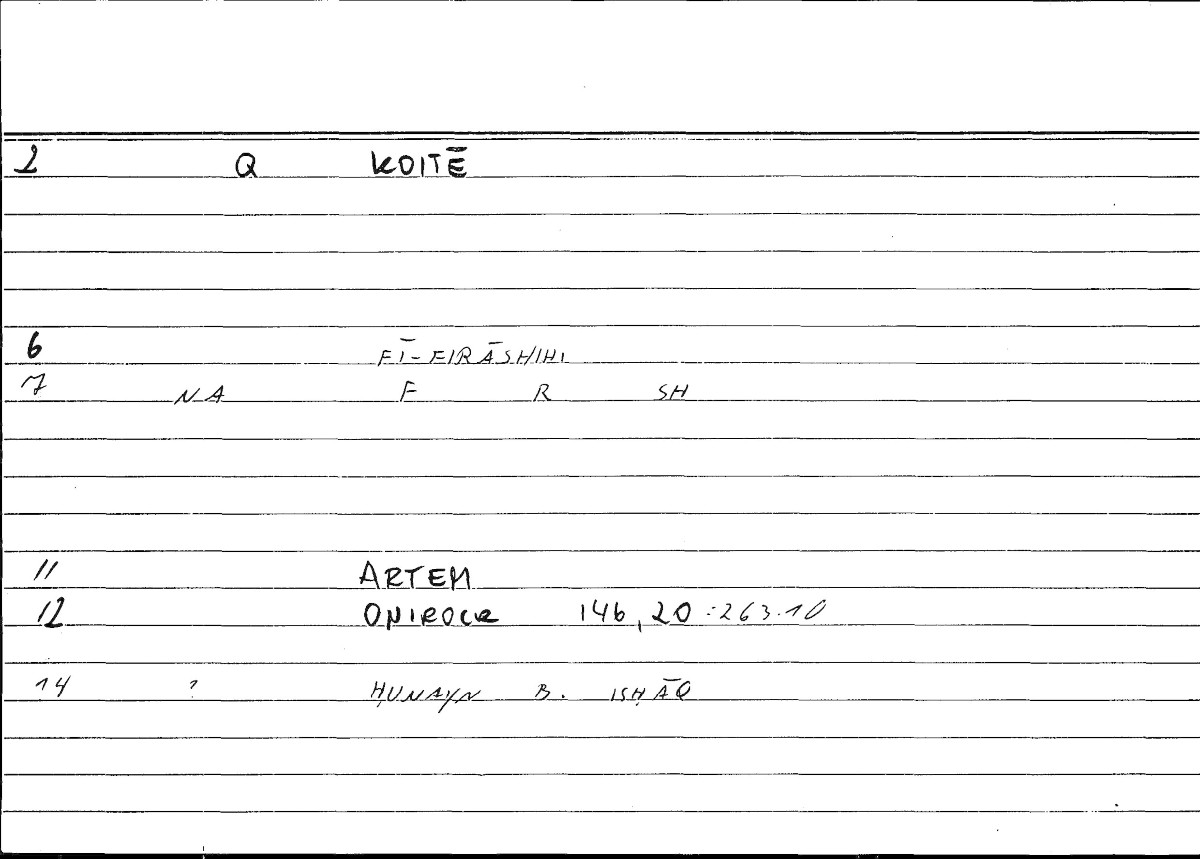 2 Q KOITĒ
6 FĪ-FIRĀSHIHI
7 NA F R SH
11 ARTEM
12 ONIROCR 146,20 :263.10
14 ? ḤUNAYN B. ISḤĀQ